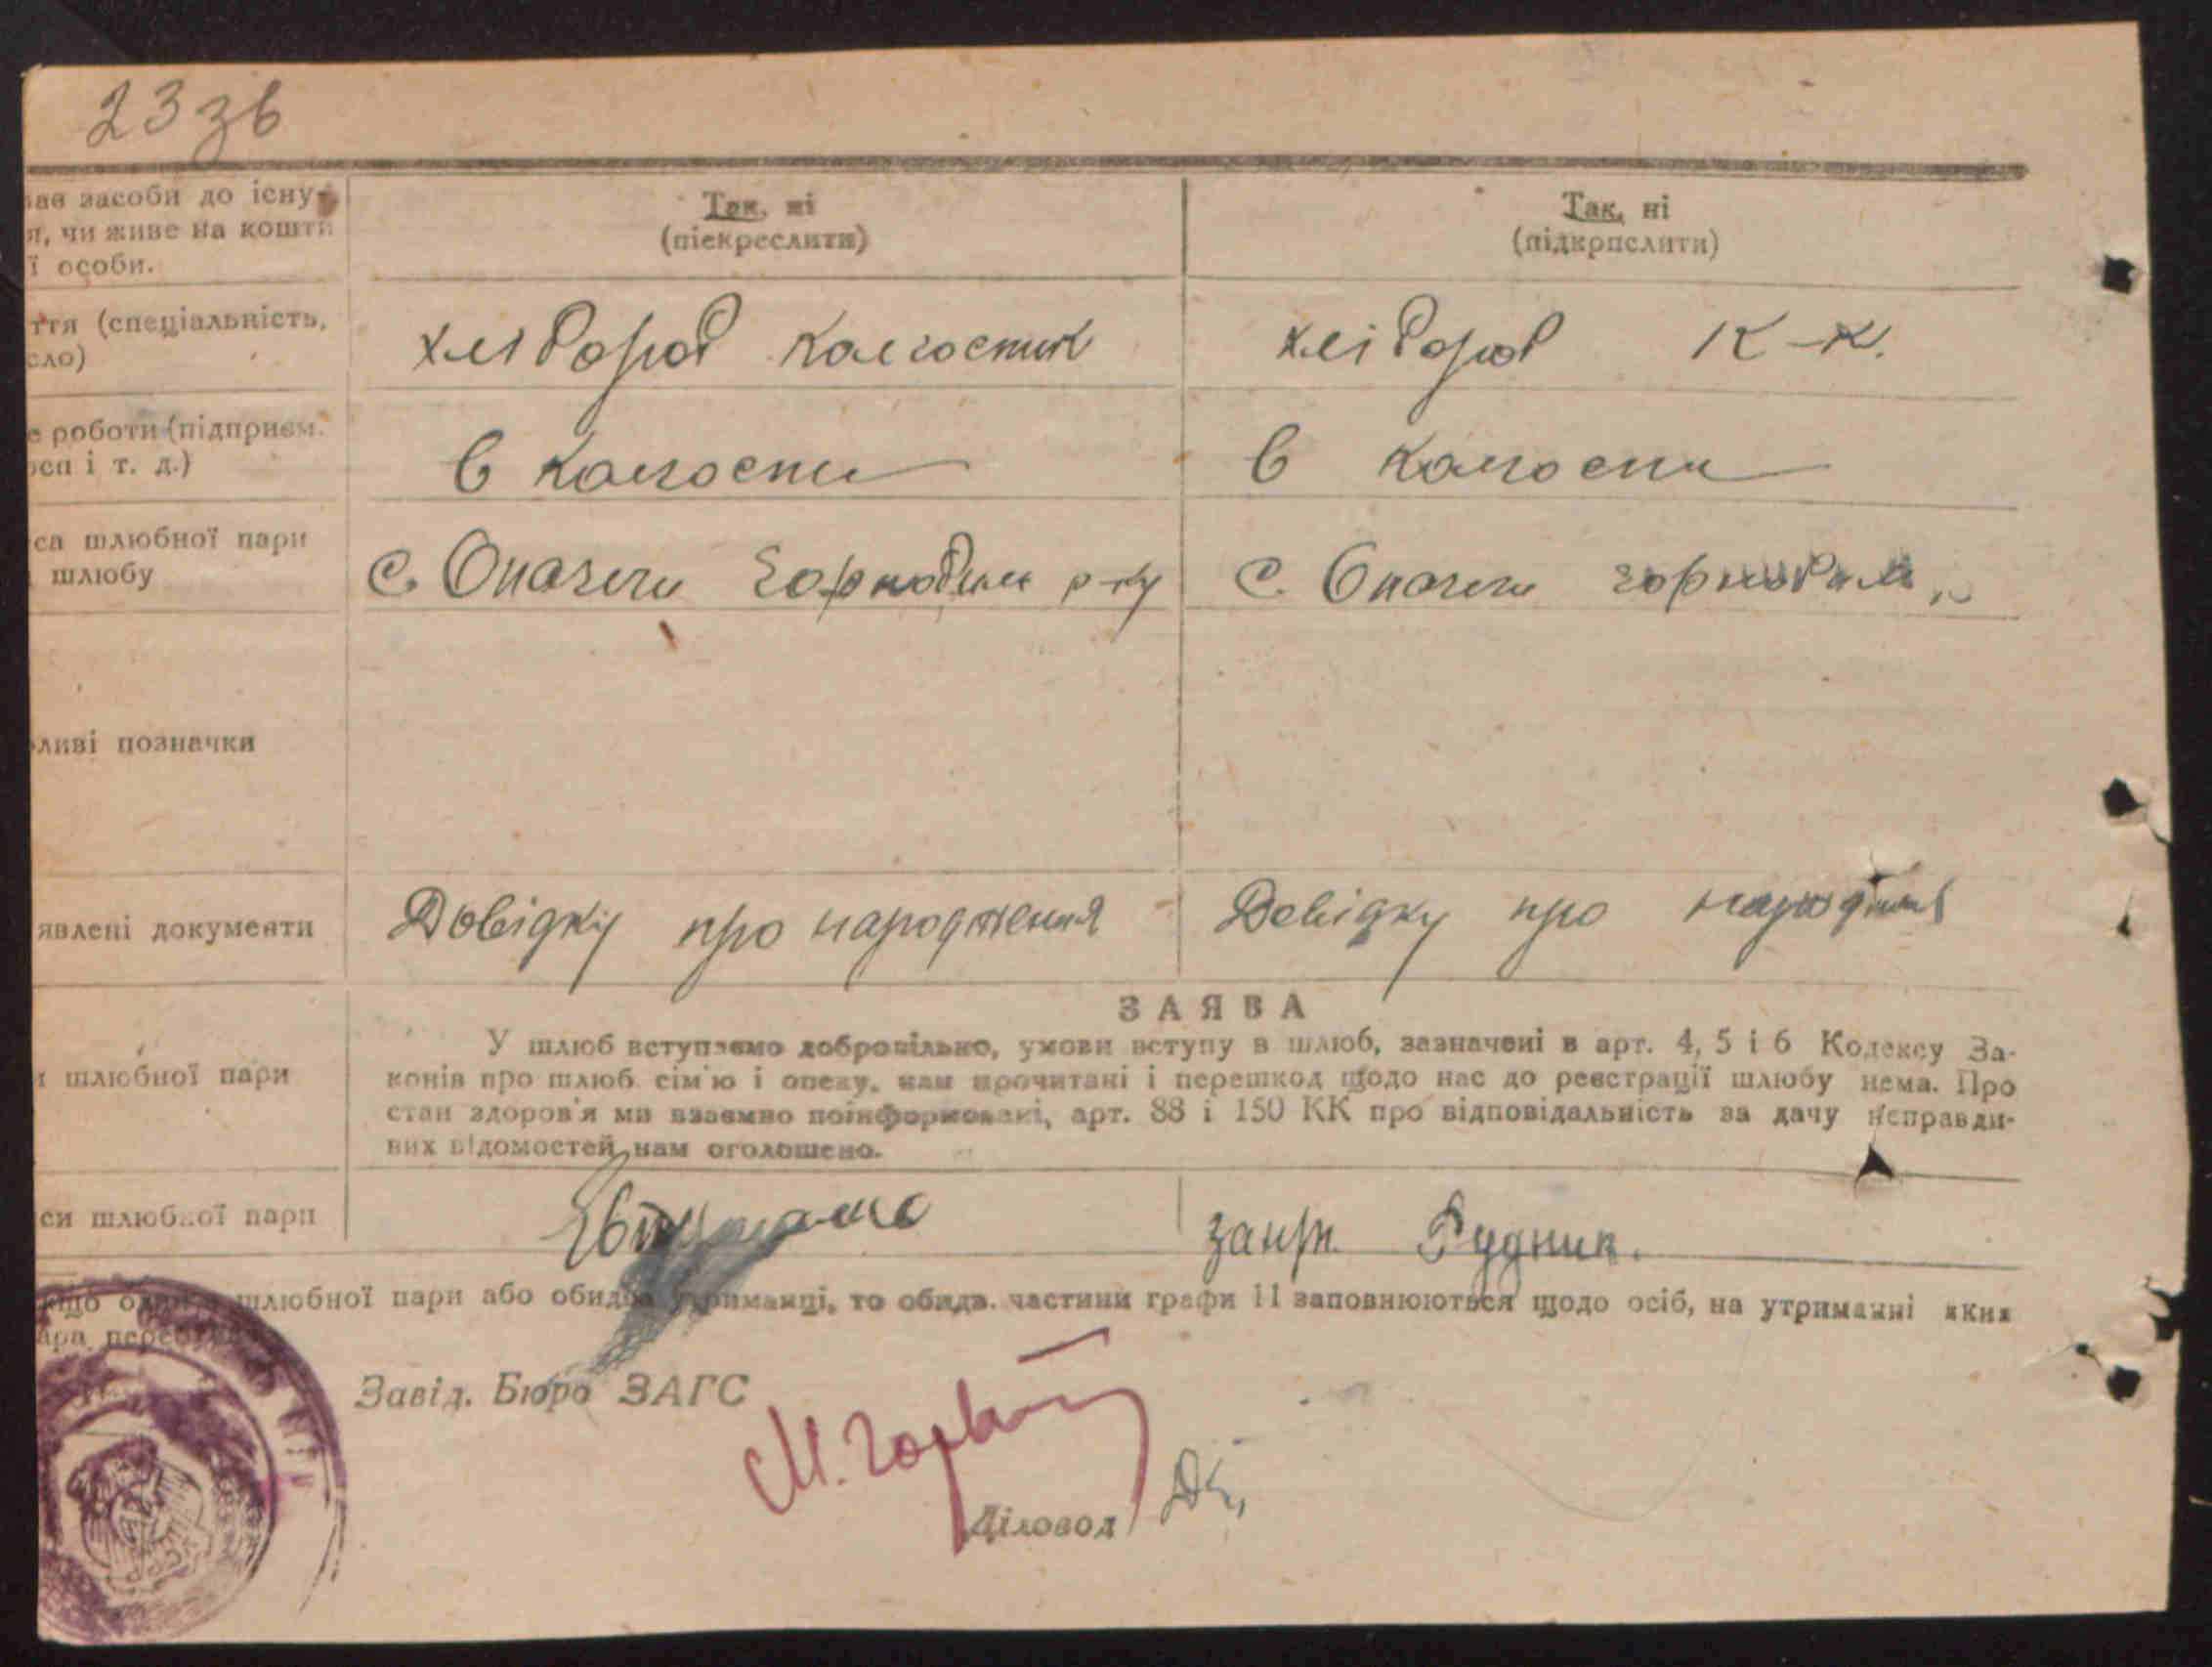 23 зв
має засоби до існу-
я, чи живе на кошти
ї особи.
Так, ні
(піекреслити)
Так, ні
(підкрпслити)
ття (спеціальність,
сло)
хлібороб колгоспник
хлібороб К-К.
е роботи (підприєм.
осп і т. д.)
в колгоспи
в колгоспи
са шлюбної пари
шлюбу
с. Опачичи Чорнобилс р-ну
с. Опачичи Чорнобилс „
ливі позначки
явлені документи
Довідку про народження
Довідку про народження
ЗАЯВА
и шлюбної пари
У шлюб вступаємо добровільно, умови вступу в шлюб, зазначені в арт. 4, 5 і 6 Кодексу За-
конів про шлюб. сім'ю і опеку, нам прочитані і перешкод щодо нас до реєстрації шлюбу нема. Про
стан здоров'я ми взаємно поінформовані, арт. 88 і 150 КК про відповідальність за дачу неправди-
вих відомостей нам оголошено.
си шлюбної пари
Рудник.
кщо один з шлюбної пари або обидва утриманці, то обидв. частини графи 11 заповнюються щодо осіб, на утриманні яких
ара перебуває
Завід. Бюро ЗАГС
Діловод